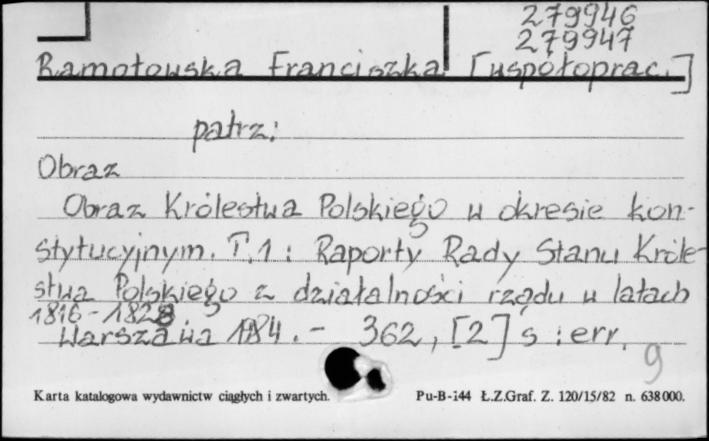 279946
279947
Ramotowska Franciszka [współoprac.]
patrz:
Obraz
Obraz Królestwa Polskiego w okresie kon-
stytucyjnym. T.1: Raporty Rady Stanu Króle-
stwa Polskiego z działalności rządu w latach
1816-1828.
Warszawa 1984. - 362, [2] s : err.
9
Karta katalogowa wydawnictw ciągłych i zwartych. Pu-B-144 Ł.Z.Graf. Z. 120/15/82 n. 638000.